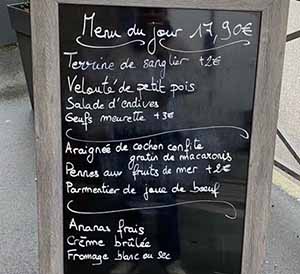 Menu du jour 17,90€
Terrine de sanglier +2€
Velouté de petit pois
Salade d'endives
Œufs meurette +3€
Araignée de cochon confite
gratin de macaronis
Pennes aux fruits de mer +2€
Parmentier de joue de bœuf
Ananas frais
Crème brûlée
Fromage blanc ou sec